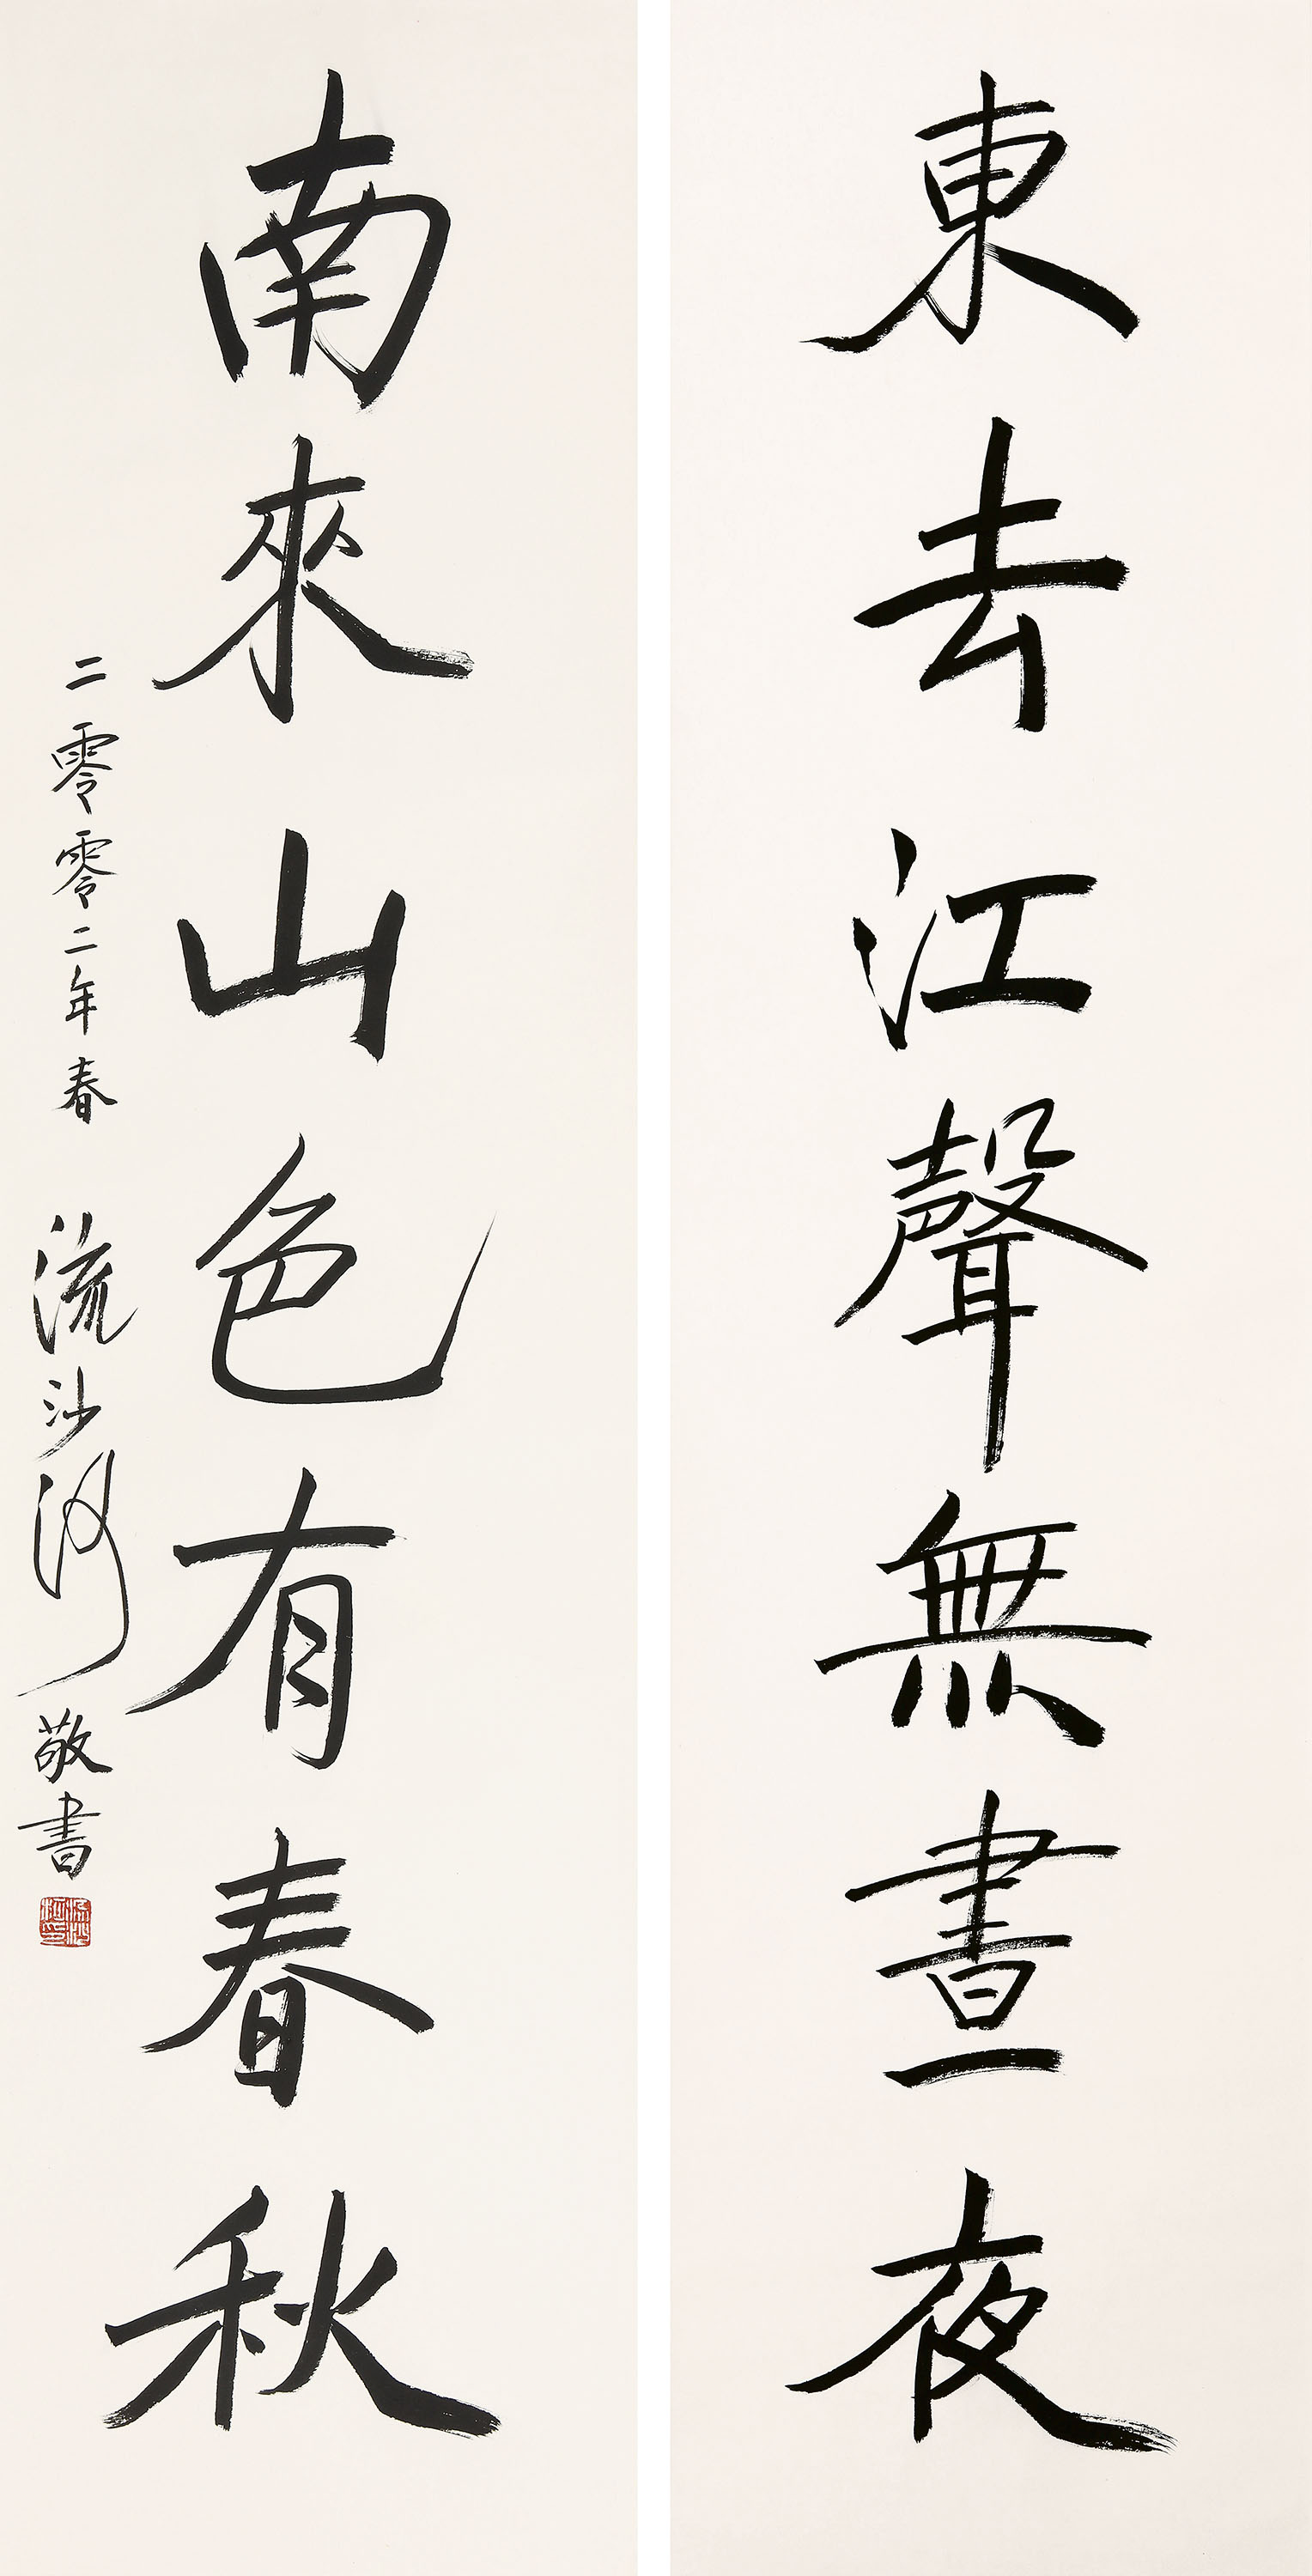 東去江聲無晝夜
南來山色有春秋
二零零二年春 流沙河敬書